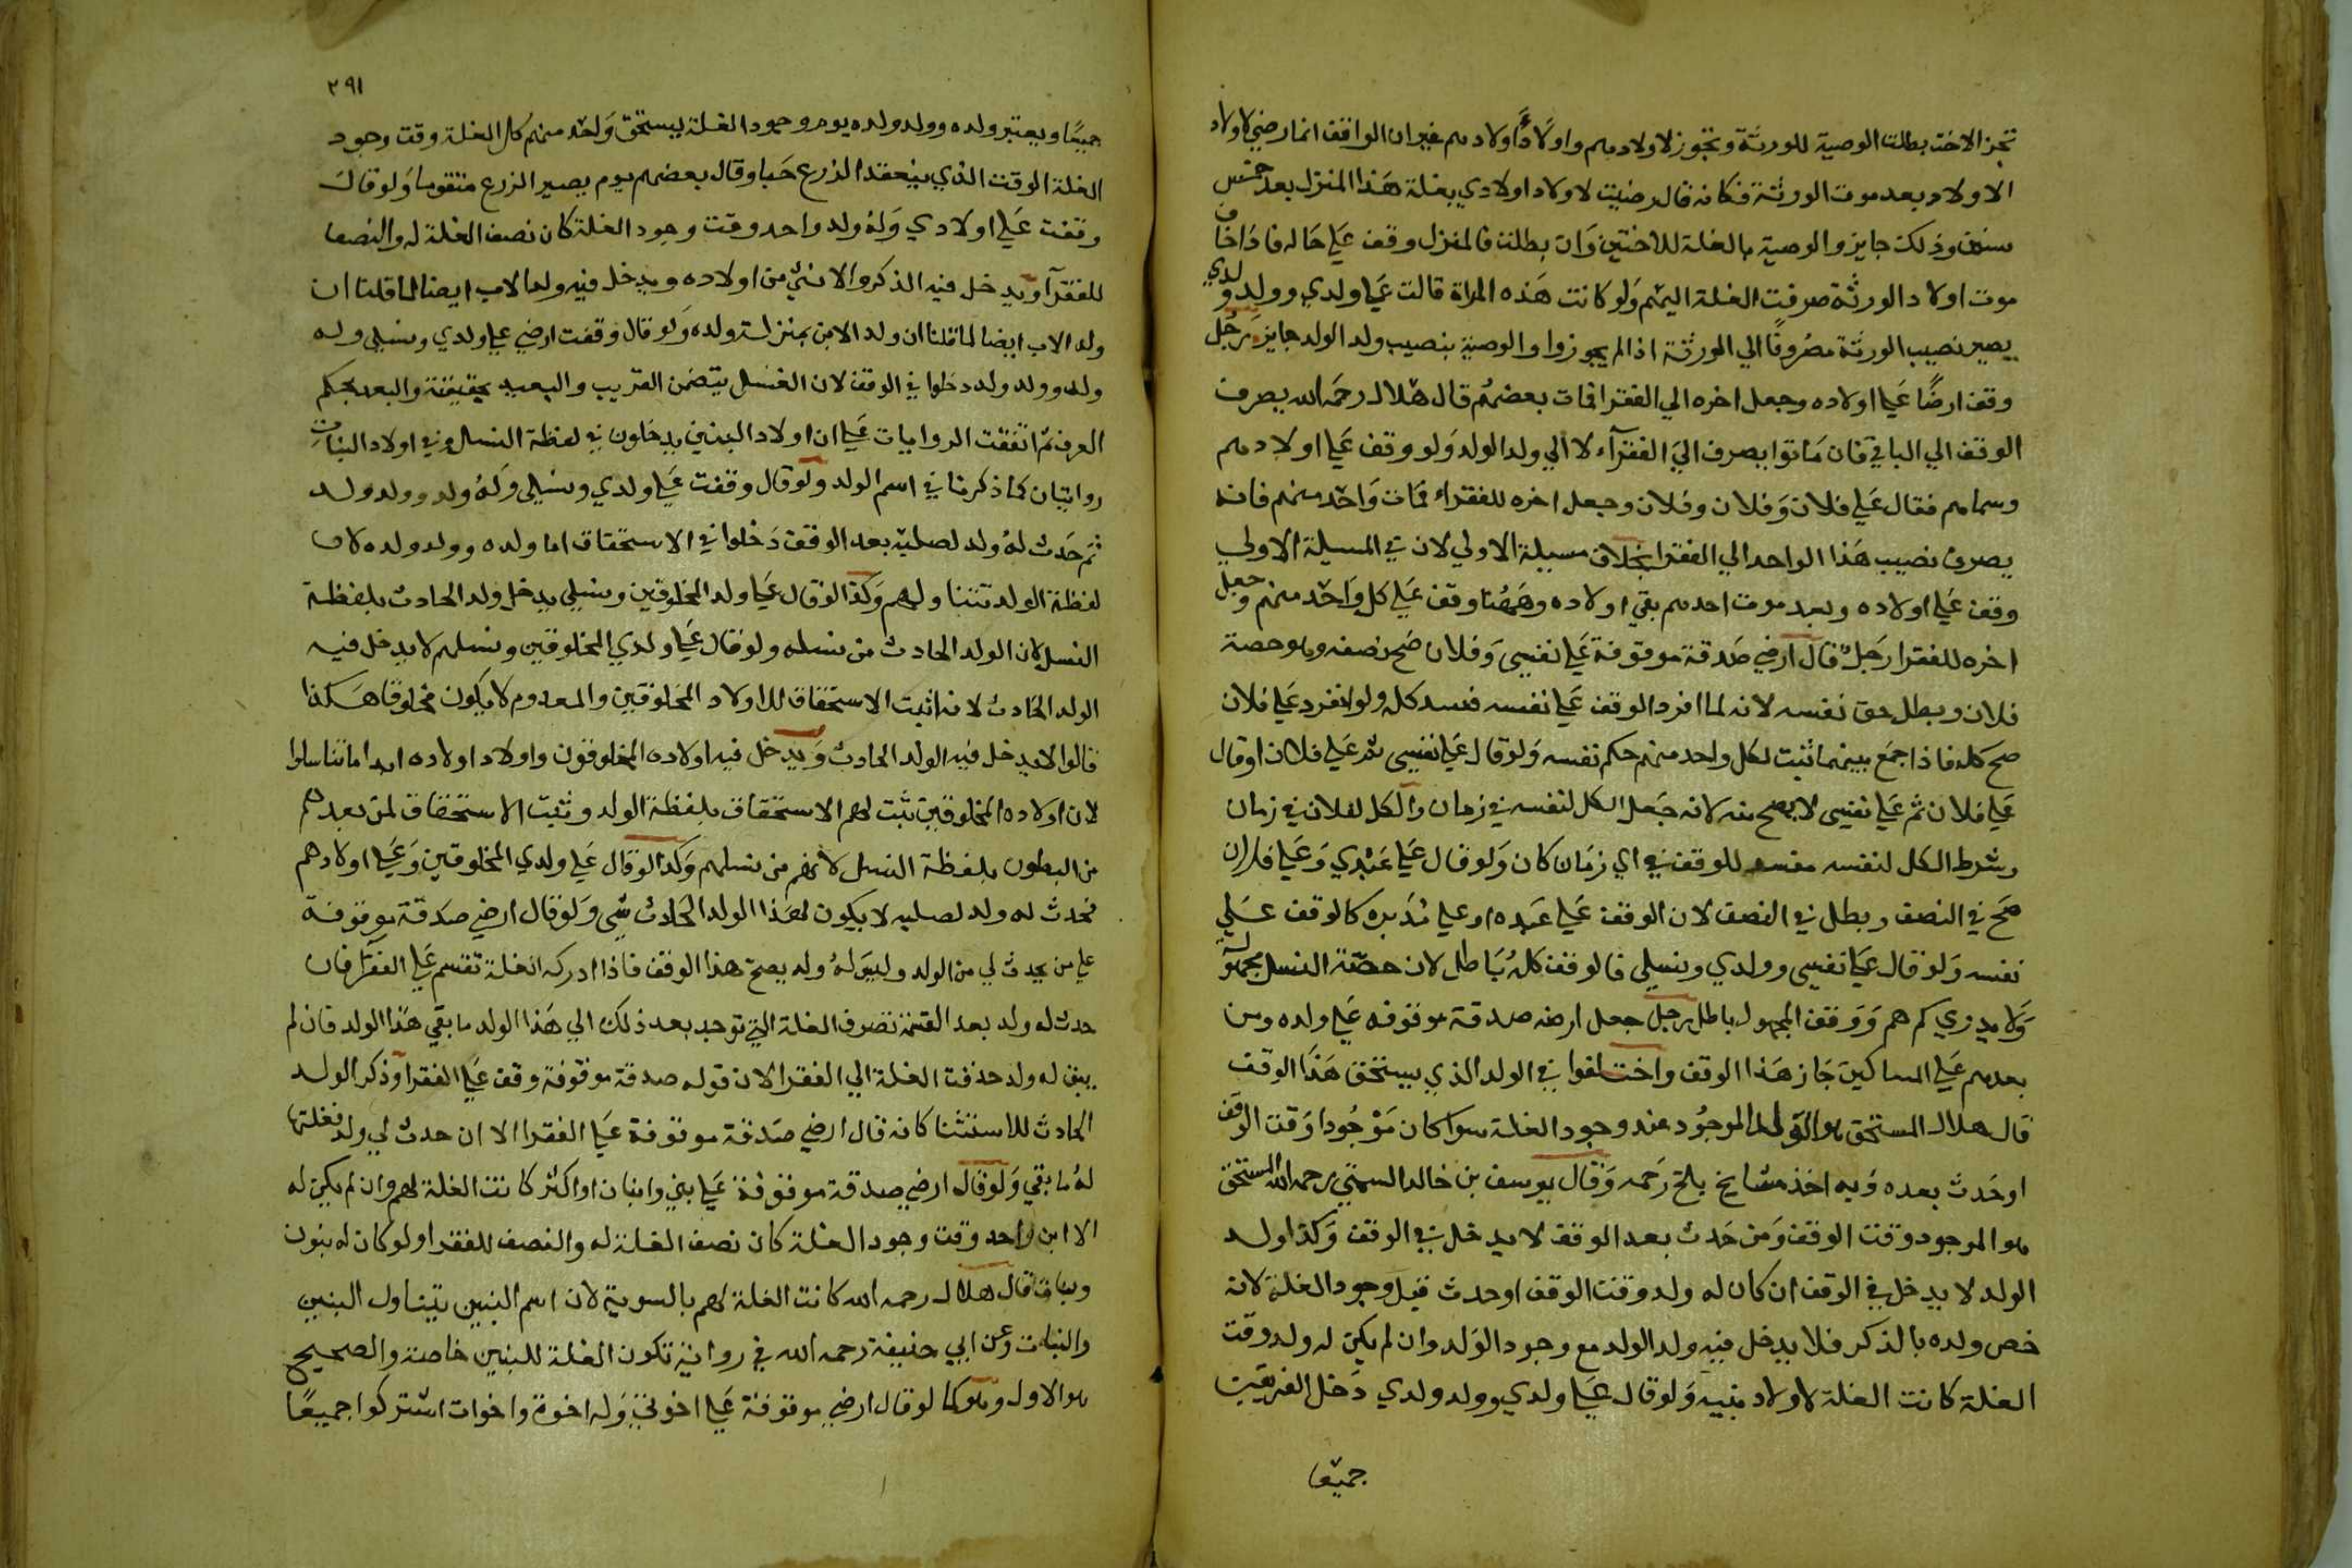 تجز الاخت بطلت الوصية للورثة وتجوز لاولادهم واولاد اولادهم غير ان الواقف انما رضي لاولاد
الاولاد بعد موت الورثة فكانه قال رضيت لاولاد اولادي بغلة هذا المنزل بعد خمس
سنين وذلك جايز والوصية بالغلة للاختين وان بطلت فالمنزل وقف علي حاله فاذا خاف
موت اولاد الورثة صرفت الغلة اليهم ولو كانت هذه المراة قالت علي ولدي وولد ولدي
يصير نصيب الورثة مصروفا الي الورثة اذا لم يجوزوا والوصية بنصيب ولد الولد جايز رجل
وقف ارضا علي اولاده وجعل اخره الي الفقرا فمات بعضهم قال هلال رحمه الله يصرف
الوقف الي الباقي فان ماتوا يصرف الي الفقرآء لا الي ولد الولد ولو وقف علي اولادهم
وسماهم فقال علي فلان وفلان وفلان وجعل اخره للفقراء فمات واحد منهم فانه
يصرف نصيب هذا الواحد الي الفقرا بخلاف مسيلة الاولي لان في المسيلة الاولي
وقف علي اولاده وبعد موت احدهم بقي اولاده وههنا وقف علي كل واحد منهم وجعل
اخره للفقرا رجل قال ارضي صدقة موقوفة علي نفسي وفلان صح نصفه وهو حصة
فلان وبطل حق نفسه لانه لما افرد الوقف علي نفسه فسد كله ولو انفرد علي فلان
صح كله فاذا جمع بينهما ثبت لكل واحد منهم حكم نفسه ولو قال علي نفسي ثم علي فلان او قال
علي فلان ثم علي نفسي لا يصح منه لانه جعل الكل لنفسه في زمان والكل لفلان في زمان
وشرط الكل لنفسه مفسد للوقف في اي زمان كان ولو قال علي عبدي وعلي فلان
صح في النصف وبطل في النصف لان الوقف علي عبده او علي مدبره كالوقف علي
نفسه ولو قال علي نفسي وولدي ونسلي فالوقف كله باطل لان حصة النسل مجهولة
ولا يدري كم هم ووقف المجهول باطل رجل جعل ارضه صدقة موقوفه علي ولده ومن
بعدهم علي المساكين جاز هذا الوقف واختلفوا في الولد الذي يستحق هذا الوقف
قال هلال المستحق هو الولد الموجود عند وجود الغلة سوا كان موجودا وقت الوقف
او حدث بعده وبه اخذ مشايخ بلخ رحمه وقال يوسف بن خالد السمتي رحمه الله المستحق
هو الموجود وقت الوقف ومن حدث بعد الوقف لا يدخل في الوقف وكذا ولد
الولد لا يدخل في الوقف ان كان له ولد وقت الوقف او حدث قبل وجود الغلة لانه
خص ولده بالذكر فلا يدخل فيه ولد الولد مع وجود الولد وان لم يكن له ولد وقت
الغلة كانت الغلة لاولاد بنيه ولو قال علي ولدي وولد ولدي دخل الفريقين
جميعا
٢٩١
جميعا ويعتبر ولده وولد ولده يوم وجود الغلة يستحق واحد منهم كل الغلة وقت وجود
الغلة الوقت الذي ينعقد الزرع حبا وقال بعضهم يوم يصير الزرع متقوما ولو قال
وقفت علي اولادي وله ولد واحد وقت وجود الغلة كان نصف الغلة له والنصف
للفقرآ ويدخل فيه الذكر والانثي من اولاده ويدخل فيه ولد الاب ايضا لما قلنا ان
ولد الاب ايضا لما قلنا ان ولد الابن بمنزلة ولده ولو قال وقفت ارضي علي ولدي ونسلي وله
ولد وولد ولد دخلوا في الوقف لان النسل يتضمن القريب والبعيد بحقيقة والبعد بحكم
العرف ثم اتفقت الروايات علي ان اولاد البنين يدخلون في لفظة النسل وفي اولاد البنات
روايتان كما ذكرنا في اسم الولد ولو قال وقفت علي ولدي ونسلي وله ولد وولد ولد
ثم حدث له ولد لصلبه بعد الوقف دخلوا في الاستحقاق اما ولده وولد ولده لان
لفظة الولد تتناولهم وكذا لو قال علي ولد المخلوقين ونسلي يدخل ولد الحادث بلفظة
النسل لان الولد الحادث من نسله ولو قال علي ولدي المخلوقين ونسلهم لا يدخل فيه
الولد الحادث لانه اثبت الاستحقاق للاولاد المخلوقين والمعدوم لا يكون مخلوقا هكذا
قالوا لا يدخل فيه الولد الحادث ويدخل فيه اولاده المخلوقون واولاد اولاده ابدا ما تناسلوا
لان اولاده المخلوقين ثبت لهم الاستحقاق بلفظة الولد وثبت الاستحقاق لمن بعدهم
من البطون بلفظة النسل لانهم من نسلهم وكذا لو قال علي ولدي المخلوقين وعلي اولادهم
فحدث له ولد لصلبه لا يكون لهذا الولد الحادث شي ولو قال ارضي صدقة موقوفة
علي من يحدث لي من الولد وليس له ولد يصح هذا الوقف فاذا ادركه الغلة تقسم علي الفقرا فان
حدث له ولد بعد القسمة تصرف الغلة التي توجد بعد ذلك الي هذا الولد ما بقي هذا الولد فان لم
يبق له ولد حذفت الغلة الي الفقرا لان قوله صدقة موقوفة وقف علي الفقرا وذكر الولد
الحادث للاستثنا كانه قال ارضي صدقة موقوفة علي الفقرا الا ان حدث لي ولد فغلتها
له ما بقي ولو قال ارضي صدقة موقوفة علي بني وابنان او اكثر كانت الغلة لهم وان لم يكن له
الا ابن واحد وقت وجود الغلة كان نصف الغلة له والنصف للفقرا ولو كان له بنون
وبنات قال هلال رحمه الله كانت الغلة لهم بالسوية لان اسم البنين يتناول البنين
والبنات وعن ابي حنيفة رحمه الله في رواية تكون الغلة للبنين خاصة والصحيح
هو الاول وهو كما لو قال ارضي موقوفة علي اخوتي وله اخوة واخوات اشتركوا جميعا